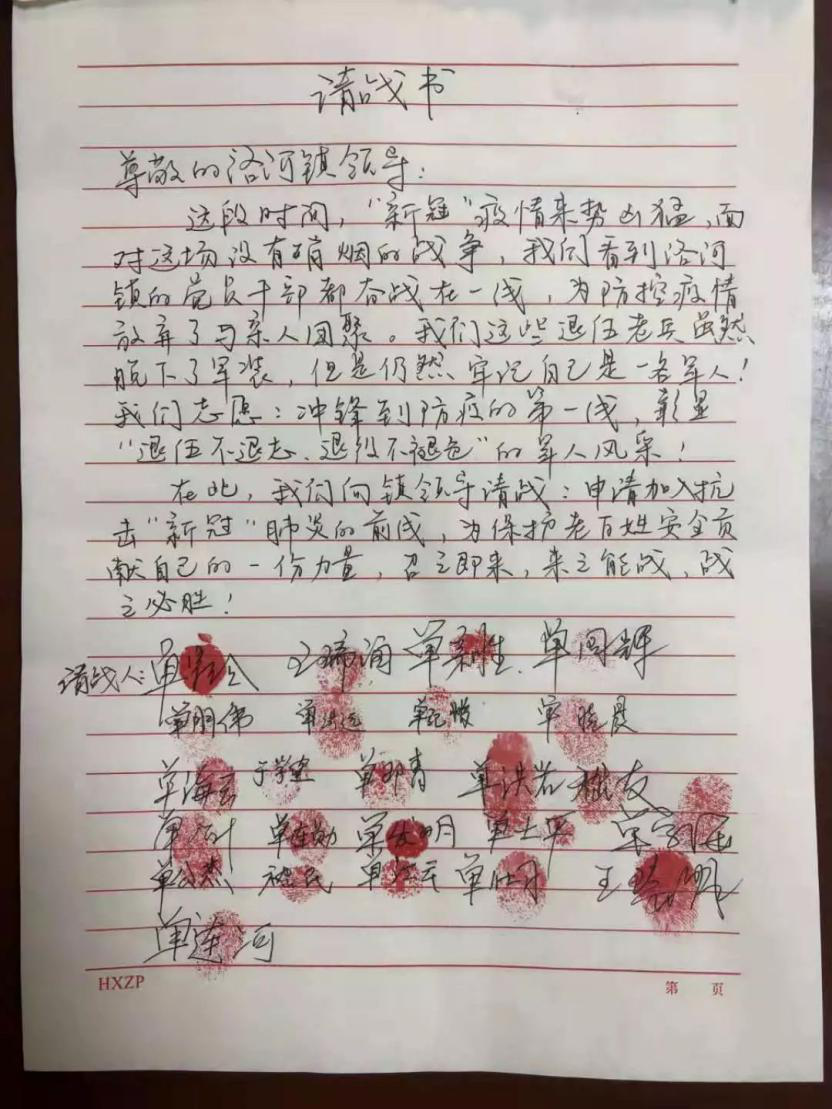 请战书
尊敬的洛河镇领导：
这段时间，“新冠”疫情来势凶猛，面
对这场没有硝烟的战争，我们看到洛河
镇的党员干部都奋战在一线，为防控疫情
放弃了与亲人团聚。我们这些退伍老兵虽然
脱下了军装，但是仍然牢记自己是一名军人！
我们志愿：冲锋到防疫的第一线，彰显
“退伍不退志、退役不褪色”的军人风采！
在此，我们向镇领导请战：申请加入抗
击“新冠”肺炎的前线，为保护老百姓安全贡
献自己的一份力量，召之即来，来之能战，战
之必胜！
请战人：单
单明伟 单 单 单晓晨
单海 于学 单 单洪岩
单 单 单 单
单 单 单 王
单连河
HXZP
第 页